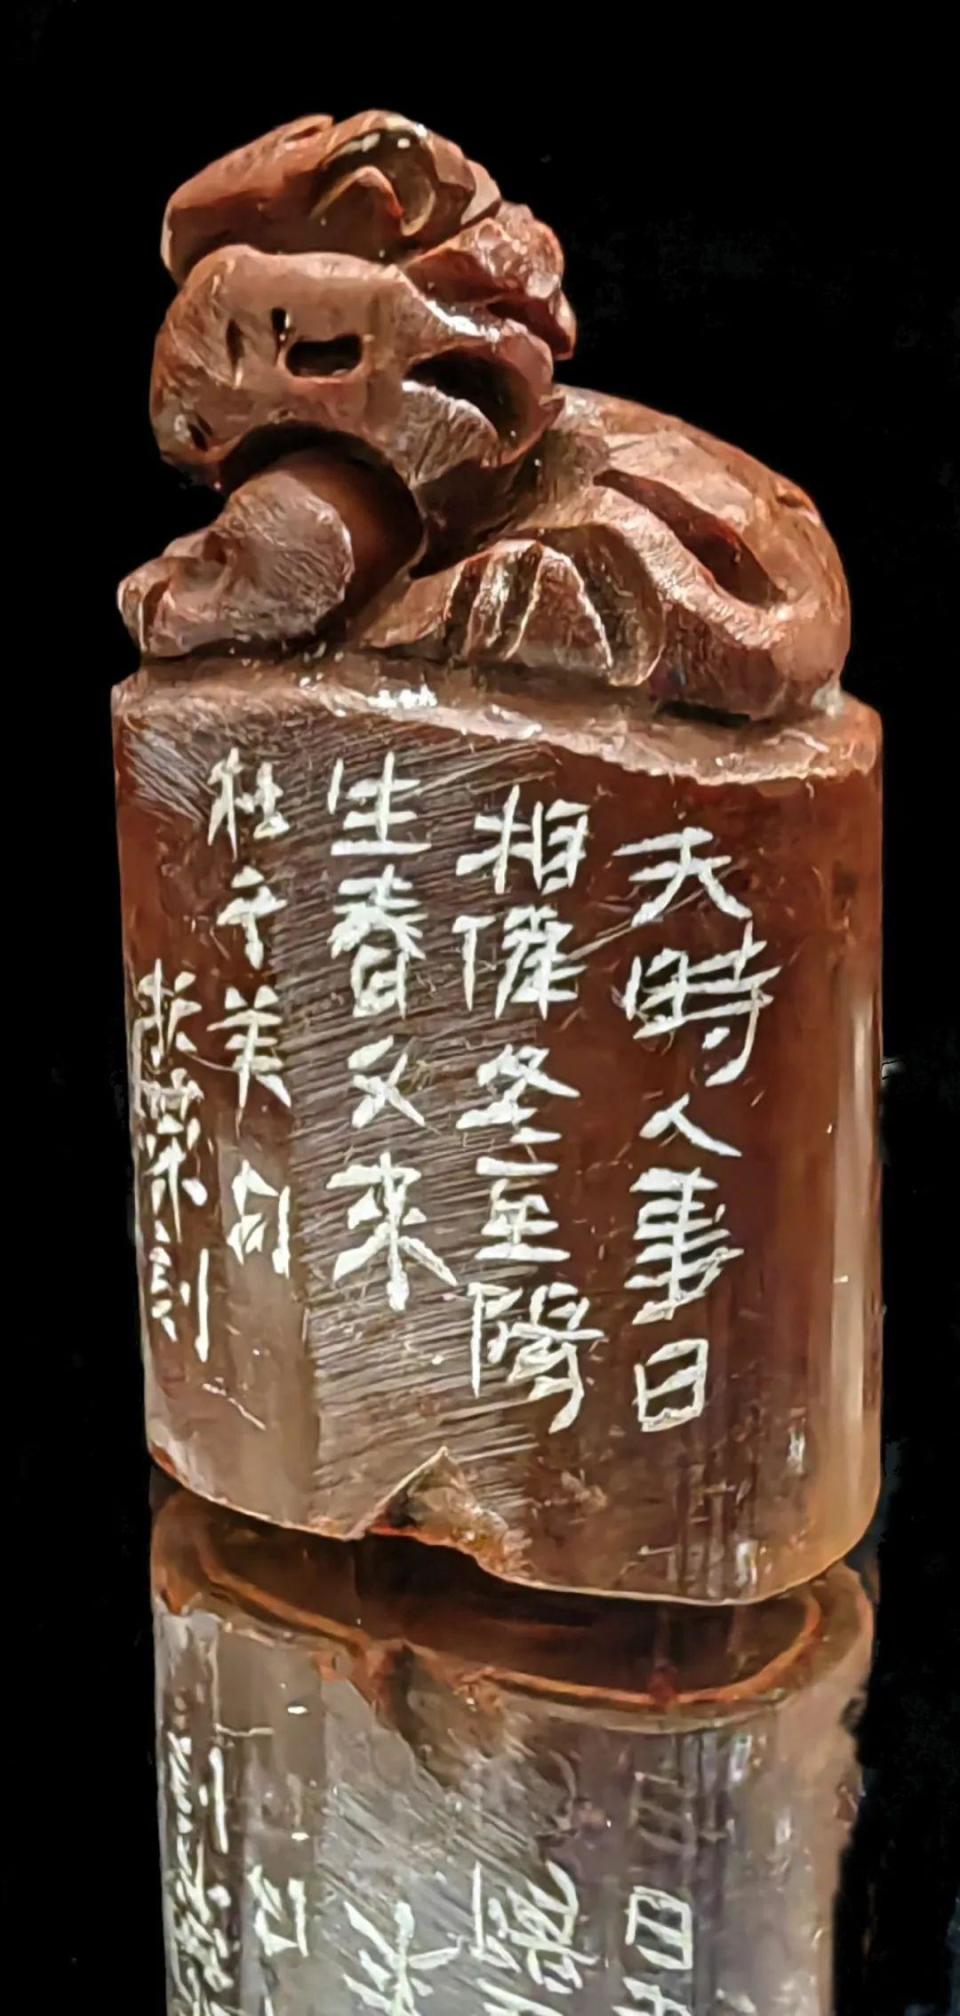 天時人事日
相催冬至陽
生春又来
杜子美句
荣刻